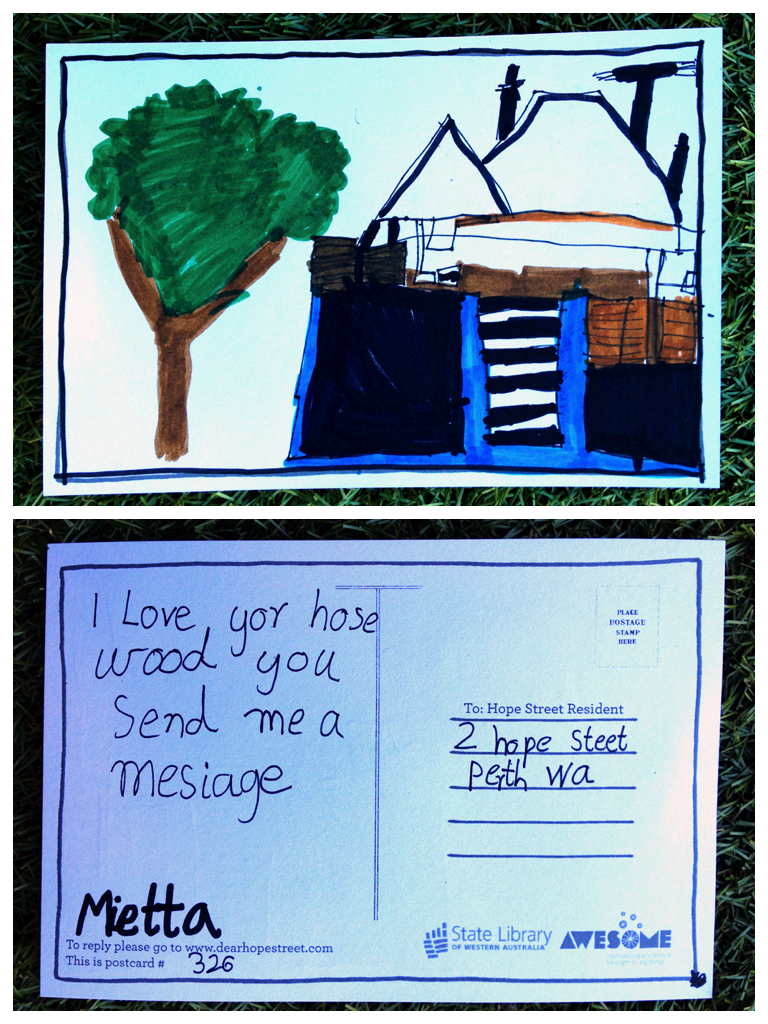 I Love yor hose
wood you
Send me a
Mesiage
Mietta
To reply please go to www.dearhopestreet.com
This is postcard # 326
PLACE
POSTAGE
STAMP
HERE
To: Hope Street Resident
2 hope steet
Perth WA
State Library
OF WESTERN AUSTRALIA
AWESOME